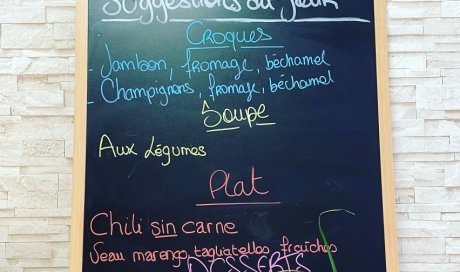 Suggestions du jour
Croques
- Jambon, fromage, béchamel
- Champignons, fromage, béchamel
Soupe
Aux Légumes
Plat
Chili sin carne
Veau marengo tagliatelles fraîches
DESSERTS